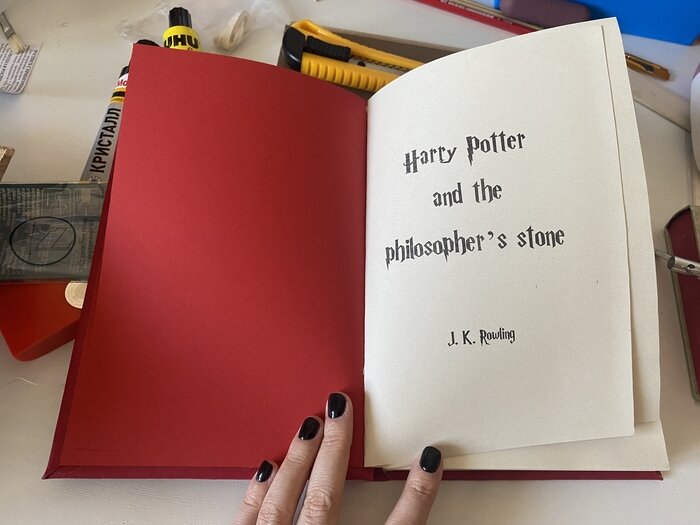 Harry Potter
and the
philosopher's stone
J. K. Rowling
UHU
КРИСТАЛЛ